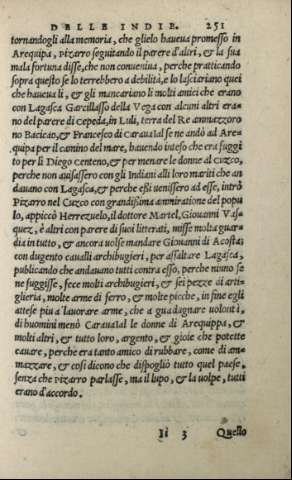 DELLE INDIE. 251
tornandogli alla memoria, che glielo haueua promesso in
Arequipa, Pizarro seguitando il parere d'altri, & la sua
mala fortuna disse, che non conueniua, perche pratticando
sopra questo se lo terrebbero a debilità, e lo lasciariano quei
che haueua li, & gli mancariano li molti amici che erano
con Lagasca Garcillasso della Vega con alcuni altri era-
no del parere di Cepeda, in Luli, terra del Re ammazzoro
no Bacicao, & Francesco di Carauaial se ne andò ad Are-
quipa per il camino del mare, hauendo inteso che era fuggi
to per li Diego Centeno, & per menare le donne al Cuzco,
perche non auisassero con gli Indiani alli loro mariti che an
dauano con Lagasca, & perche essi uenissero ad esse, intrò
Pizarro nel Cuzco con grandissima ammiratione del popu
lo, appiccò Herrezuelo, il dottore Martel, Giouanni Vas-
quez, e altri con parere di suoi litterati, misse molta guar-
dia in tutto, & ancora uolse mandare Giouanni di Acosta,
con dugento caualli archibugieri, per assaltare Lagasca,
publicando che andauano tutti contra esso, perche niuno se
ne fuggisse, fece molti archibugieri, & sei pezze di arti-
glieria, molte arme di ferro, & molte picche, in fine egli
attese piu a lauorare arme, che a guadagnare uolontì,
di huomini menò Carauaial le donne di Arequippa, &
molti altri, et tutto loro, argento, & gioie che potette
cauare, perche era tanto amico di rubbare, come di am-
mazzare, & cosi dicono che dispogliò tutto quel paese,
senza che Pizarro parlasse, ma il lupo, & la uolpe, tutti
erano d'accordo.
Ii 3 Quello